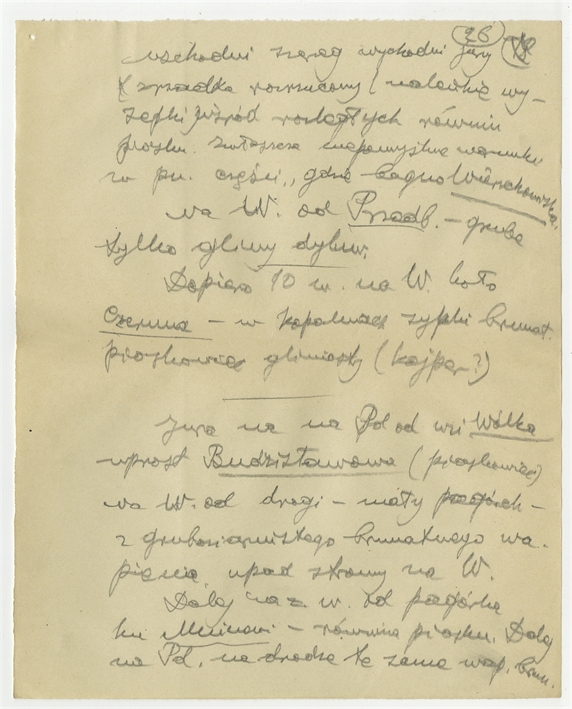 26
wschodni szereg wychodni jury
(zrzadka rozrzucony) maleńkie wy-
sepki wśród rozległych równin
piasku. Zwłaszcza niepomyślne warunki
w pn. części, gdzie bagno Wierzchowiska
na W. od Przedb. – grube
tylko gliny dyluw.
Dopiero 10 w. na W. koło
Czermna – w kopalniach sypki brunat.
piaskowiec gliniasty (kajper?)
Jura na Pd od wsi Wólka
wprost Budzisławowa (piaskowiec)
na W. od drogi – mały pagórek –
z gruboziarnistego brunatnego wa-
pienia, upad stromy na W.
Dalej na 2 w. od pagórka
ku – równina piasku. Dalej
na Pd. na drodze te same wap. brun.